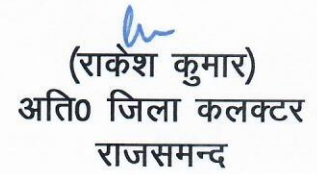 (राकेश कुमार)
अति0 जिला कलक्टर
राजसमन्द